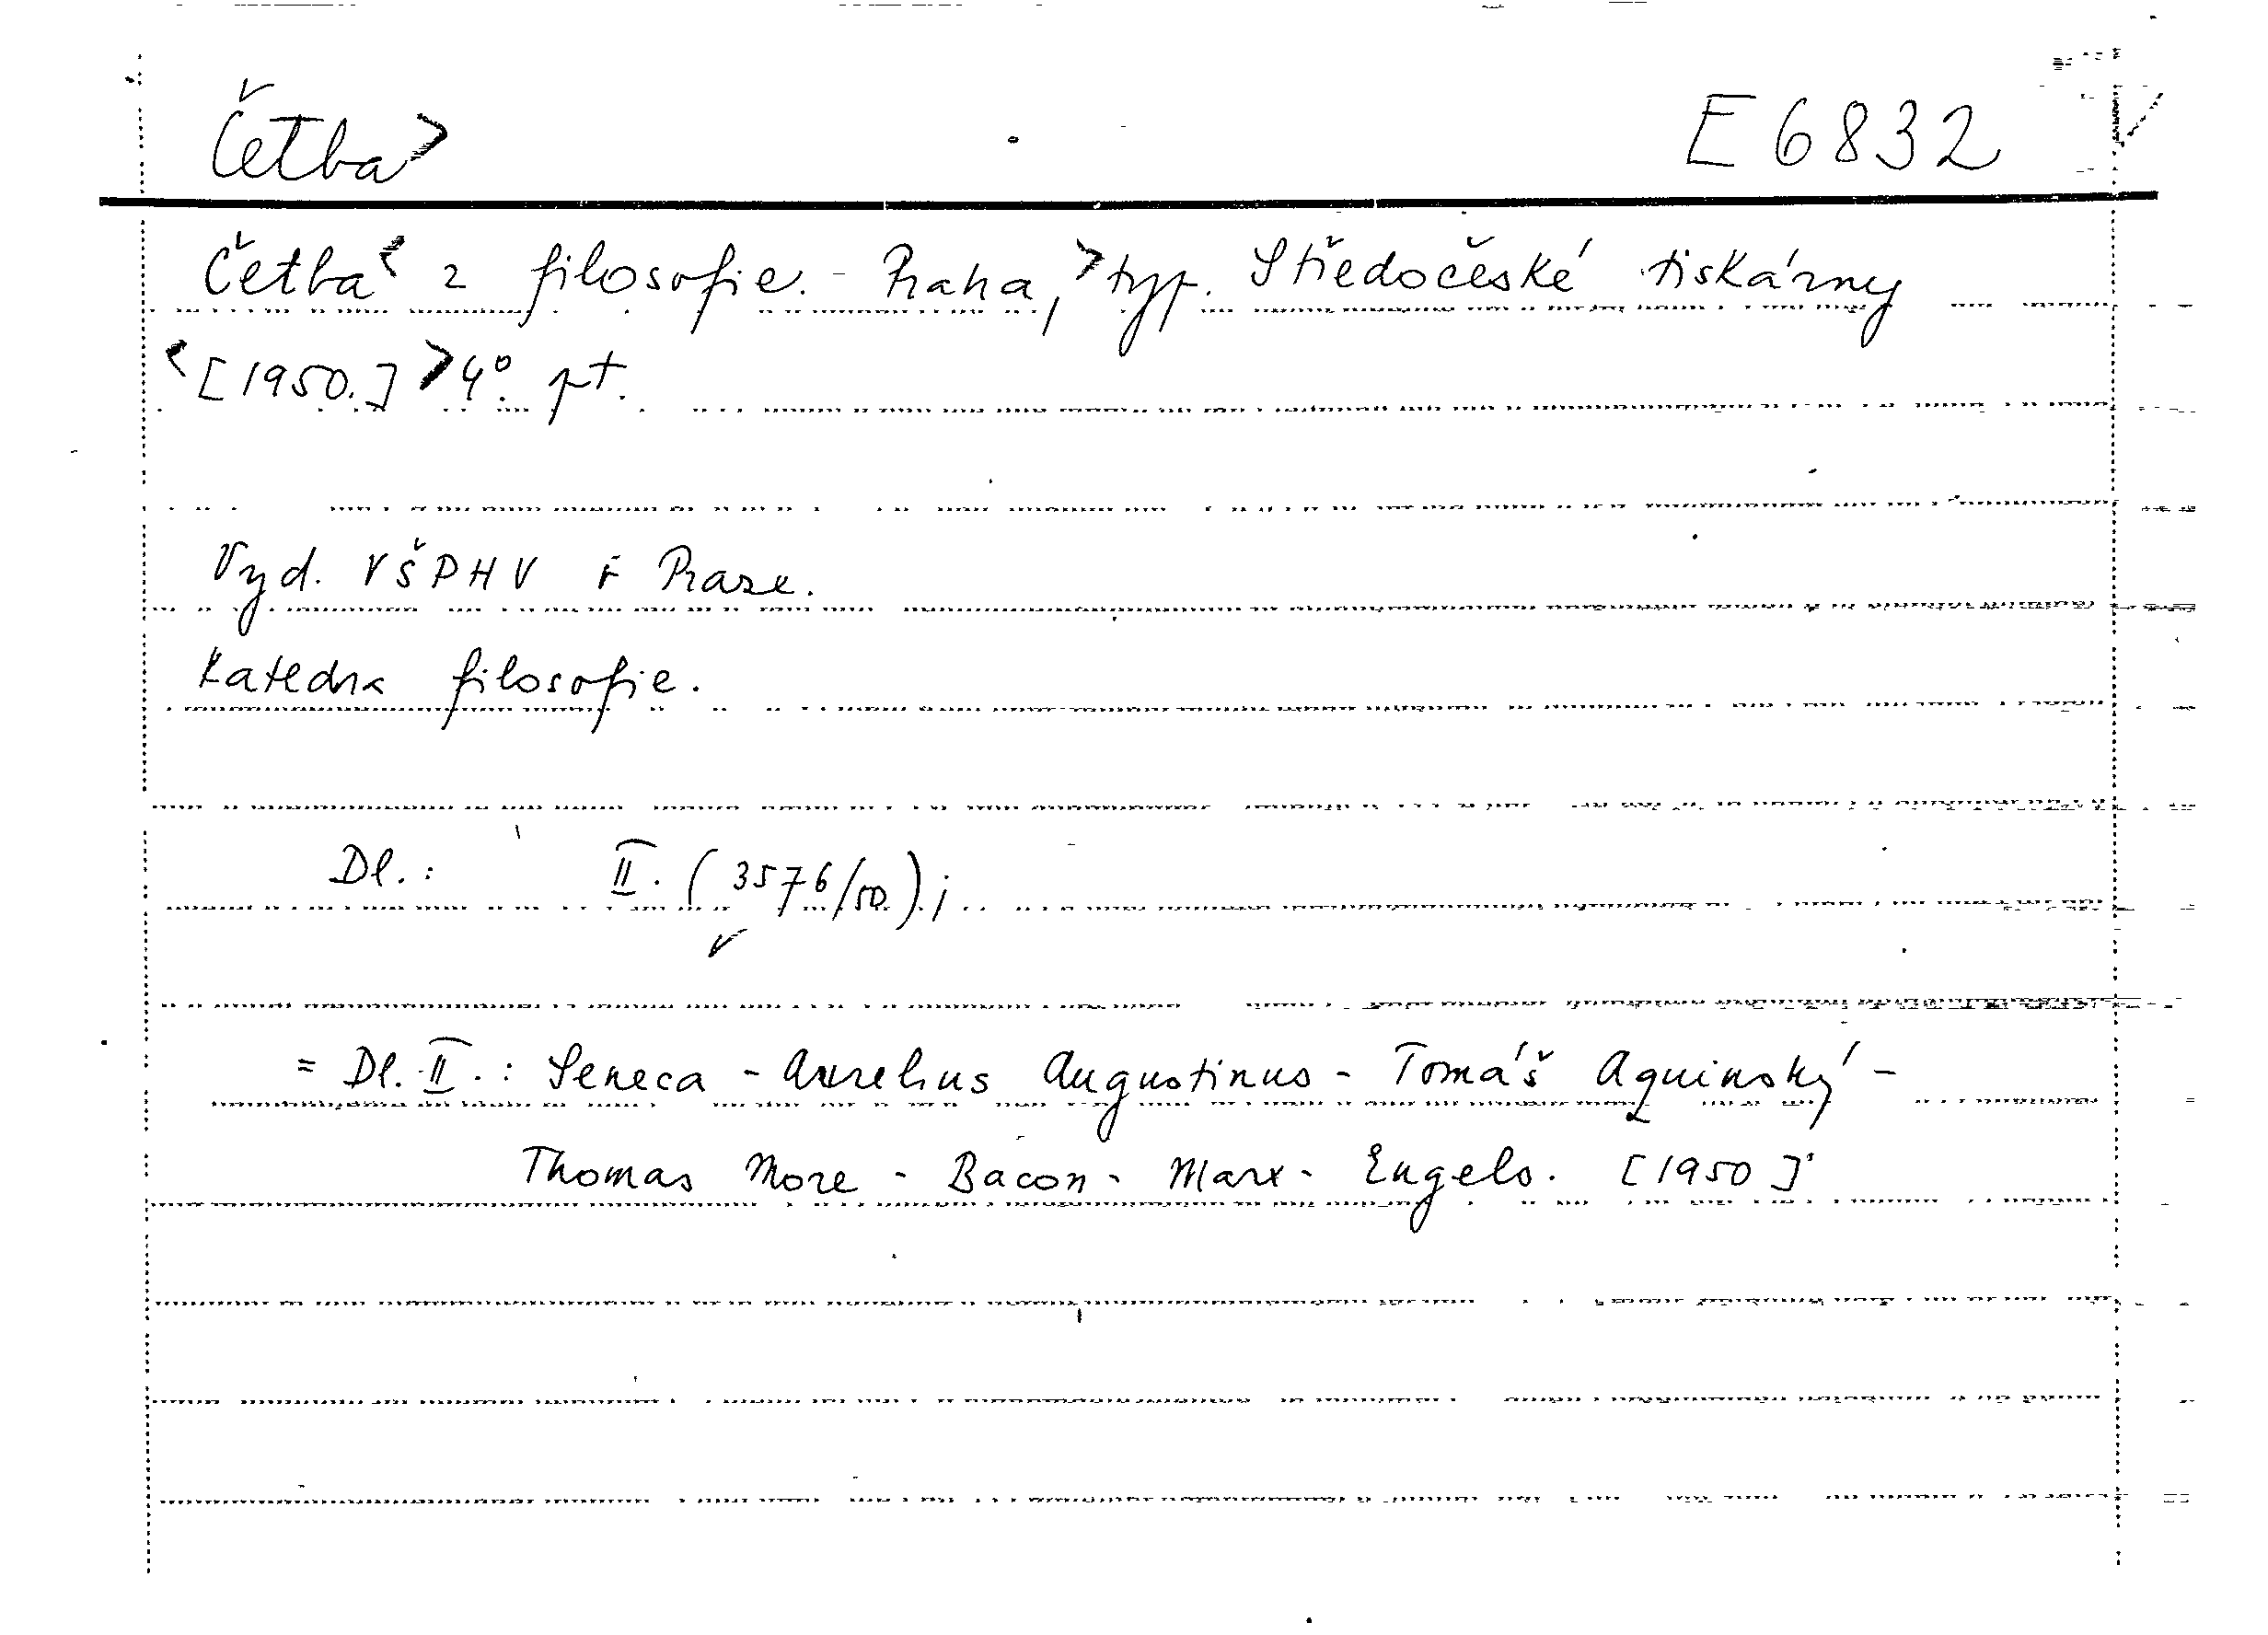 Četba> E 6832
Četba< z filosofie. - Praha, >typ. Středočeské tiskárny
<[1950.] >4°. pt.
Vyd. VŠPHV v Praze.
Katedra filosofie.
Dl.: II. (3576/50);
= Dl. II.: Seneca - Aurelius Augustinus - Tomáš Aquinský -
Thomas More - Bacon - Marx - Engels. [1950]